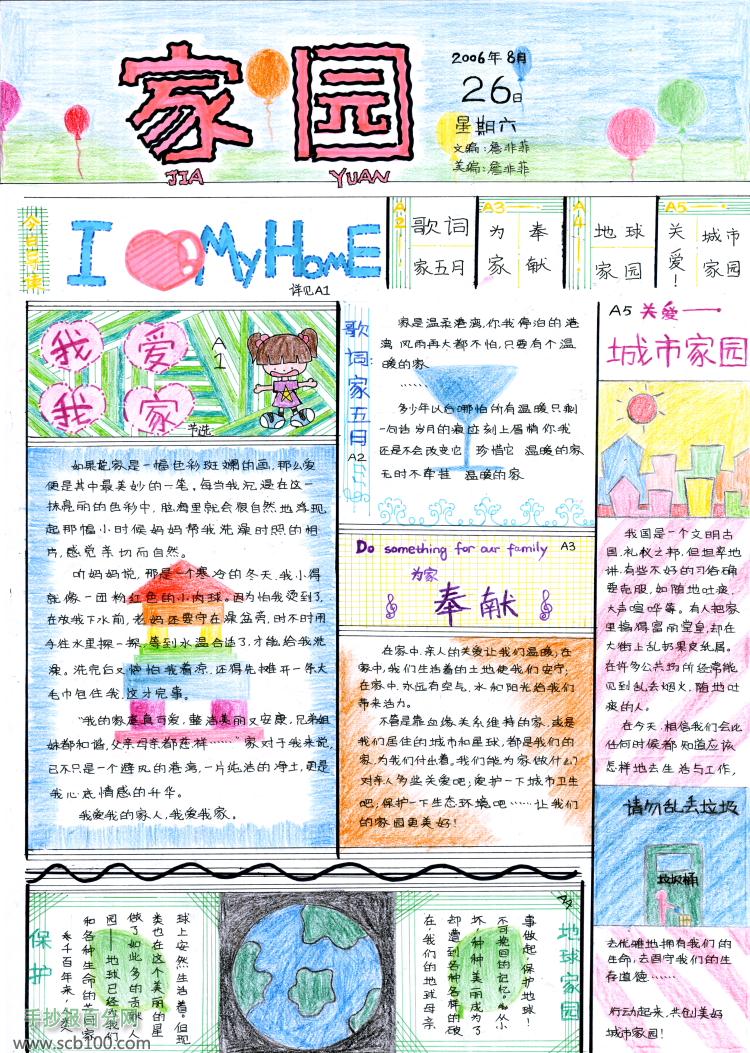 家园
JIA YUAN
2006年8月
26日
星期六
文编:詹非菲
美编:詹非菲
今日导读
I My HomE
详见A1
A2
歌词
家五月
A3
为家
奉献
A4
地球
家园
A5
关爱!
城市
家园
我爱
我家
A1
节选
如果说家是一幅色彩斑斓的画,那么爱
便是其中最美妙的一笔。每当我沉浸在这一
抹亮丽的色彩中,脑海里就会很自然地浮现
起那幅小时候妈妈帮我洗澡时照的相
片,感觉亲切而自然。
听妈妈说,那是一个寒冷的冬天,我小得
就像一团粉红色的小肉球。因为怕我烫到了,
在放我下水前,老妈还要守在澡盆旁,时不时用
手往水里探一探,等到水温合适了,才能给我洗
澡。洗完后又惟怕我着凉,还得先摊开一条大
毛巾包住我,这才完事。
“我的家庭真可爱,整洁美丽又安康,兄弟姐
妹都和谐,父亲母亲都慈祥……”家对于我来说,
已不只是一个避风的港湾,一片纯洁的净土,更是
我心底情感的升华。
我爱我的家人,我爱我家。
歌词:家五月
A2
家是温柔港湾,你我停泊的港
湾 风雨再大都不怕,只要有个温
暖的家
……
多少年以后哪怕所有温暖只剩
一句话 岁月的痕迹刻上眉梢 你我
还是不会改变它 珍惜它 温暖的家
无时不牵挂 温暖的家
Do something for our family A3
为家
奉献
在家中,亲人的关爱让我们温暖;在
家中,我们生活着的土地使我们安宁;
在家中,永远有空气、水和阳光给我们
带来活力。
不管是靠血缘关系维持的家,或是
我们居住的城市和星球,都是我们的
家,为我们付出着。我们能为家做什么?
对亲人多些关爱吧;爱护一下城市卫生
吧;保护一下生态环境吧……让我们
的家园更美好!
A5 关爱——
城市家园
我国是一个文明古
国,礼仪之邦,但坦率地
讲,有些不好的习俗确
要克服,如随地吐痰、
大声喧哗等。有人把家
里搞得富丽堂皇,却在
大街上乱扔果皮纸屑。
在许多公共场所经常能
见到乱丢烟火、随地吐
痰的人。
在今天,相信我们会比
任何时候都知道应该
怎样地去生活与工作,
请勿乱丢垃圾
垃圾桶
去优雅地拥有我们的
生命,去固守我们的生
存道德……
行动起来,共创美好
城市家园!
保护
A4
地球家园
事做起,保护地球!
不可挽回的记忆。从小
坏,种种美丽成为了
却遭到各种各样的破
在,我们的地球母亲
球上安然生活着!但现
类也在这个美丽的星
做了如此多的贡献,人
园——地球已经为我们
和各种生命的美丽家
千百年来,人类
手抄报百分网
www.scb100.com